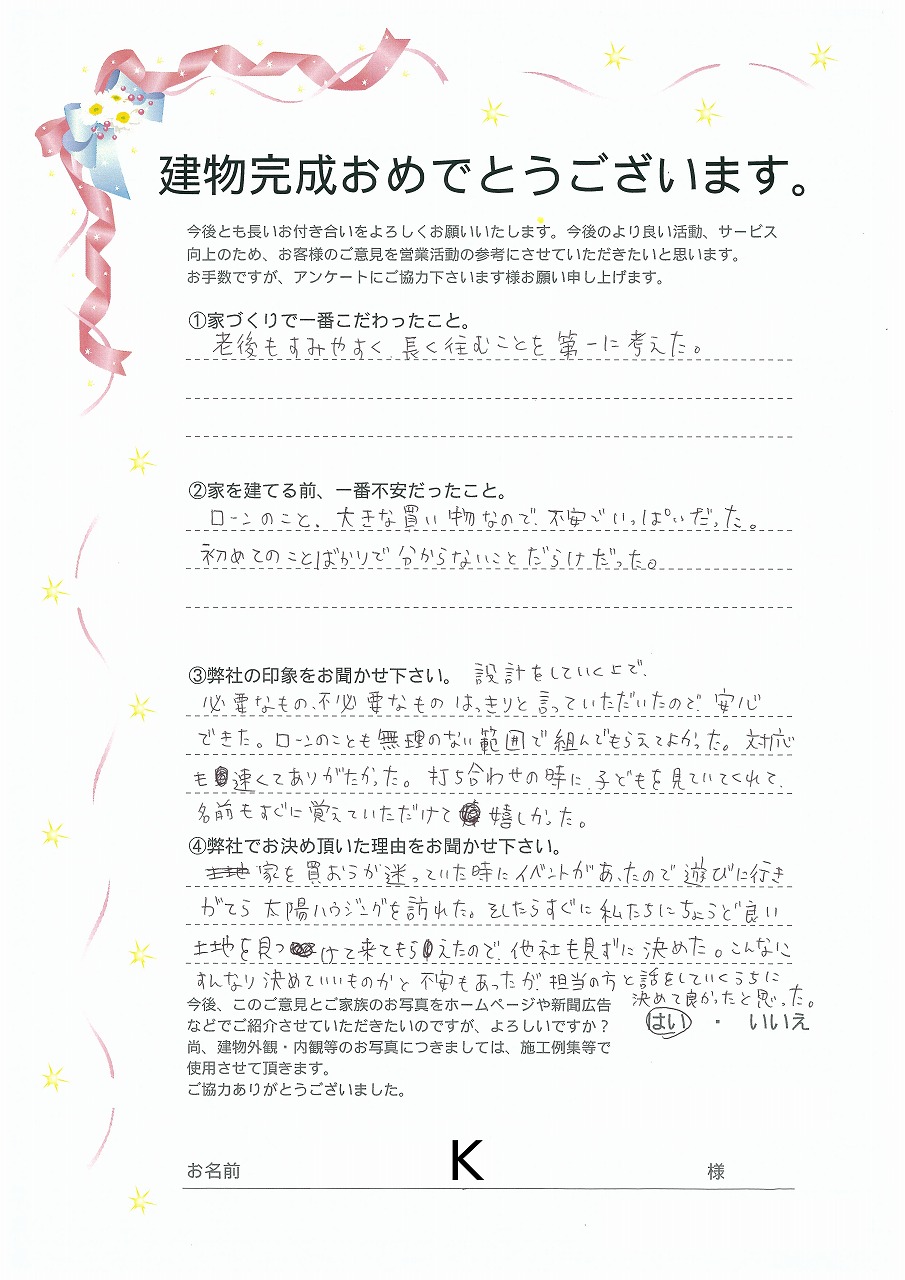 建物完成おめでとうございます。
今後とも長いお付き合いをよろしくお願いいたします。今後のより良い活動、サービス
向上のため、お客様のご意見を営業活動の参考にさせていただきたいと思います。
お手数ですが、アンケートにご協力下さいます様お願い申し上げます。
①家づくりで一番こだわったこと。
老後もすみやすく長く住むことを第一に考えた。
②家を建てる前、一番不安だったこと。
ローンのこと、大きな買い物なので、不安でいっぱいだった。
初めてのことばかりで分からないことだらけだった。
③弊社の印象をお聞かせ下さい。 設計をしていく上で、
必要なもの、不必要なものはっきりと言っていただいたので、安心
できた。ローンのことも無理のない範囲で組んでもらえてよかった。対応
も速くてありがたかった。打ち合わせの時に、子どもを見ていてくれて、
名前もすぐに覚えていただけて嬉しかった。
④弊社でお決め頂いた理由をお聞かせ下さい。
家を買おうか迷っていた時にイベントがあったので遊びに行き
がてら太陽ハウジングを訪れた。そしたらすぐに私たちにちょうど良い
土地を見つけて来てもらえたので、他社も見ずに決めた。こんなに
すんなり決めていいものかと不安もあったが、担当の方と話をしていくうちに
決めて良かったと思った。
今後、このご意見とご家族のお写真をホームページや新聞広告
などでご紹介させていただきたいのですが、よろしいですか？ はい ・ いいえ
尚、建物外観・内観等のお写真につきましては、施工例集等で
使用させて頂きます。
ご協力ありがとうございました。
お名前 K 様